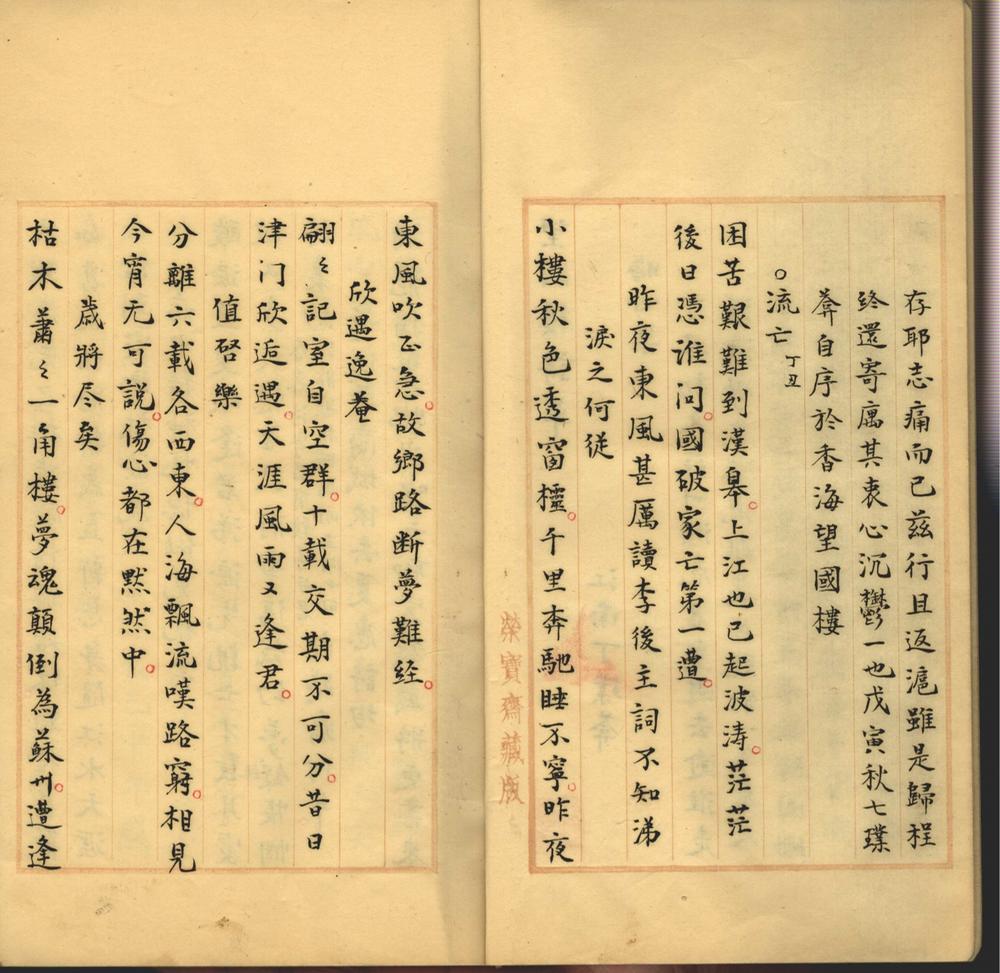 存耶志痛而已茲行且返滬雖是歸程
終還寄寓其衷心沉鬱一也戊寅秋七璞
弇自序於香海望國樓
○流亡 丁丑
困苦艱難到漢皋。上江也已起波涛。茫茫
後日憑誰问。國破家亡第一遭。
昨夜東風甚厲讀李後主詞不知涕
淚之何從
小樓秋色透窗櫺。千里奔馳睡不寧。昨夜
榮寶齋藏版
東風吹正急。故鄉路断夢難經。
欣遇逸菴
翩〻記室自空群。十載交期不可分。昔日
津门欣逅遇。天涯風雨又逢君。
值啓樂
分離六載各西東。人海飄流嘆路窮。相見
今宵无可説。傷心都在默然中。
歲將尽矣
枯木蕭〻一角樓。夢魂顛倒為蘇州。遭逢